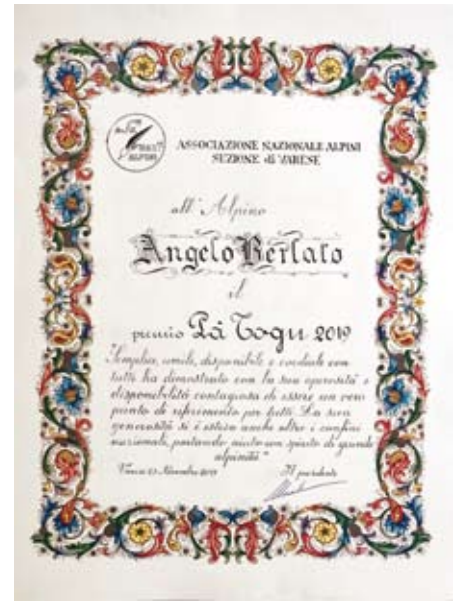 ASSOCIAZIONE NAZIONALE ALPINI
SEZIONE di VARESE
all'Alpino
Angelo Berlato
il
premio Pà Togn 2019
Semplice, umile, disponibile e cordiale con
tutti ha dimostrato con la sua operosità e
disponibilità contagiosa di essere un vero
punto di riferimento per tutti. La sua
generosità si è estesa anche oltre i confini
nazionali, portando aiuto con spirito di grande
alpinità"
Varese 23 Novembre 2019 Il presidente